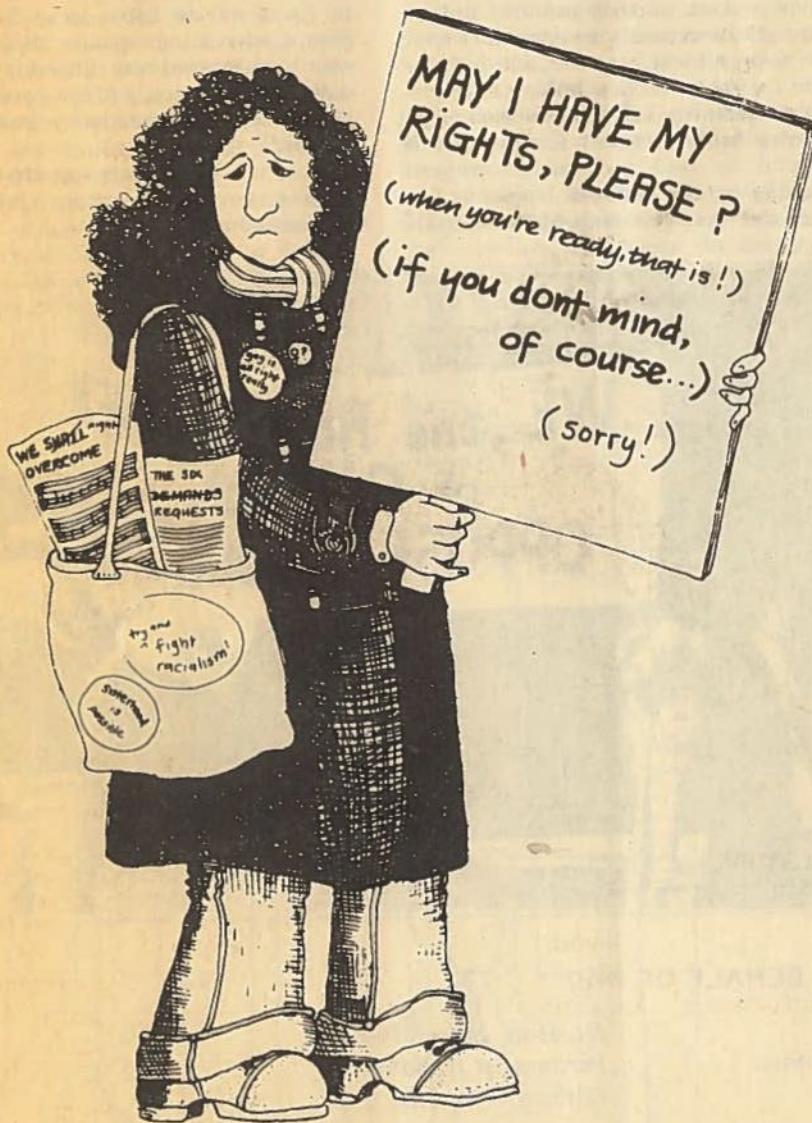 MAY I HAVE MY
RIGHTS, PLEASE?
(when you're ready, that is!)
(if you dont mind,
of course...)
(sorry!)
gay is
all right
really
WE SHALL might
OVERCOME
THE SIX
DEMANDS
REQUESTS
try and
fight
racialism!
sisterhood
is
possible
BEHALF OF